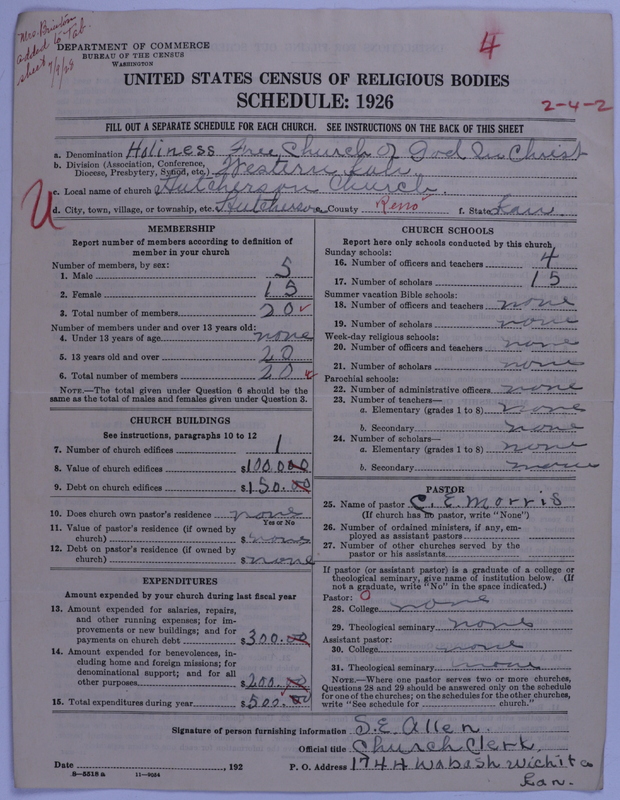 Mrs. Brinton
added to Tab.
sheet 7/9/28
4
DEPARTMENT OF COMMERCE
BUREAU OF THE CENSUS
WASHINGTON
UNITED STATES CENSUS OF RELIGIOUS BODIES
SCHEDULE: 1926
2-4-2
FILL OUT A SEPARATE SCHEDULE FOR EACH CHURCH. SEE INSTRUCTIONS ON THE BACK OF THIS SHEET
a. Denomination Holiness Free Church Of God In Christ
b. Division (Association, Conference, Diocese, Presbytery, Synod, etc.) Western Kan.
c. Local name of church Hutcherson Church.
d. City, town, village, or township, etc. Hutcherson e. County Reno f. State Kan.
MEMBERSHIP
Report number of members according to definition of
member in your church
Number of members, by sex:
1. Male 5
2. Female 15
3. Total number of members 20
Number of members under and over 13 years old:
4. Under 13 years of age none
5. 13 years old and over 20
6. Total number of members 20
NOTE.—The total given under Question 6 should be the
same as the total of males and females given under Question 3.
CHURCH BUILDINGS
See instructions, paragraphs 10 to 12
7. Number of church edifices 1
8. Value of church edifices $100.000
9. Debt on church edifices $150.00
10. Does church own pastor's residence none
Yes or No
11. Value of pastor's residence (if owned by
church) $ none
12. Debt on pastor's residence (if owned by
church) $ none
EXPENDITURES
Amount expended by your church during last fiscal year
13. Amount expended for salaries, repairs,
and other running expenses; for im-
provements or new buildings; and for
payments on church debt $300.00
14. Amount expended for benevolences, in-
cluding home and foreign missions; for
denominational support; and for all
other purposes $200.00
15. Total expenditures during year $500.00
CHURCH SCHOOLS
Report here only schools conducted by this church
Sunday schools:
16. Number of officers and teachers 4
17. Number of scholars 15
Summer vacation Bible schools:
18. Number of officers and teachers none
19. Number of scholars none
Week-day religious schools:
20. Number of officers and teachers none
21. Number of scholars none
Parochial schools:
22. Number of administrative officers none
23. Number of teachers—
a. Elementary (grades 1 to 8) none
b. Secondary none
24. Number of scholars—
a. Elementary (grades 1 to 8) none
b. Secondary none
PASTOR
25. Name of pastor C. E. Morris
(If church has no pastor, write "None")
26. Number of ordained ministers, if any, em-
ployed as assistant pastors
27. Number of other churches served by the
pastor or his assistants
If pastor (or assistant pastor) is a graduate of a college or
theological seminary, give name of institution below. (If
not a graduate, write "No" in the space indicated.)
Pastor: 0
28. College none
29. Theological seminary none
Assistant pastor:
30. College none
31. Theological seminary none
NOTE.—Where one pastor serves two or more churches,
Questions 28 and 29 should be answered only on the schedule
for one of the churches; on the schedules for the other churches,
write "See schedule for church."
Signature of person furnishing information S. E. Allen.
Official title Church Clerk.
Date , 192 P. O. Address 1744 Wabash Wichita
Kan.
8-5518 a 11-9054